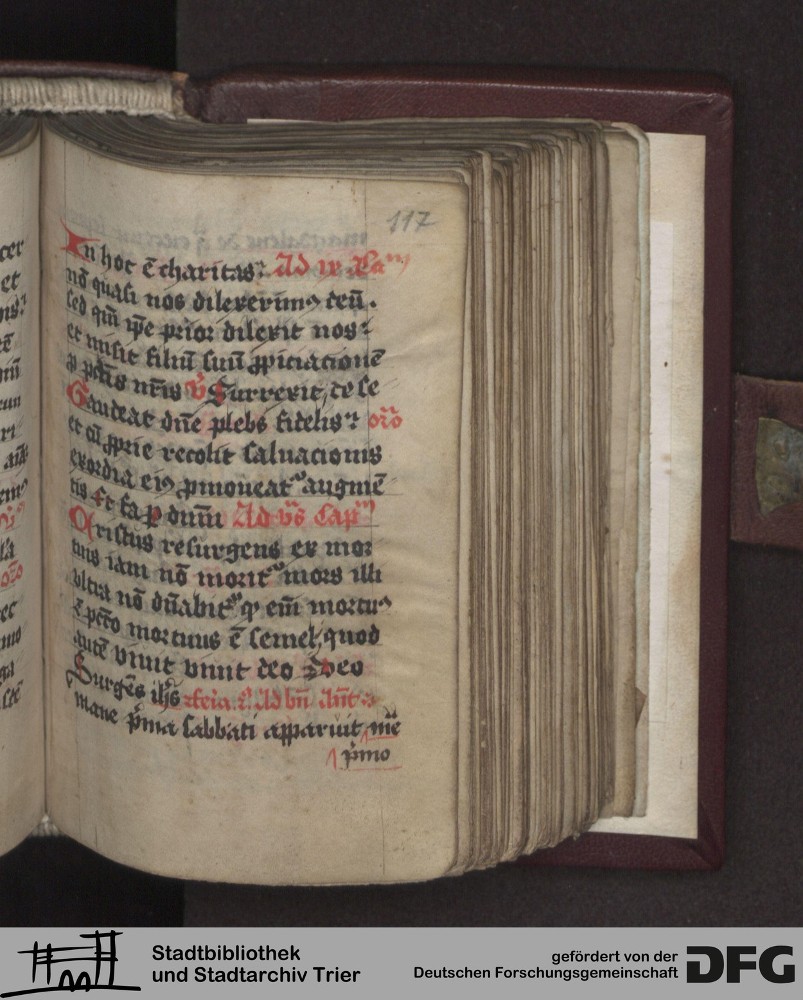 117
In hoc ē charitas? Ad ix Capm
nō quasi nos dilexerimꝰ deū.
sed qm̄ ip̄e prior dilexit nos?
et misit filiū suū ꝓpiciacionē
p pctīs nr̄is v̄ Surrexit, de se
Gaudeat dn̄e plebs fidelis? or̄o
et cū ꝓprie recolit saluacionis
exordia eiꝰ ꝓmoueat augmē
tis Et fa p dnm̄ Ad vs̄ Capm
Christus resurgens ex mor
tuis iam nō morit mors illi
vltra nō dn̄abit qꝫ em̄ mortuꝰ
ē pctō mortuus ē semel, quod
autē viuit viuit deo Deo
Surgēs ih̄s feīa. 2. Ad bn̄ An̄t
mane p̄ma sabbati apparuit me
p̄mo
cer
et
ns?
Stadtbibliothek
und Stadtarchiv Trier
gefördert von der
Deutschen Forschungsgemeinschaft
DFG